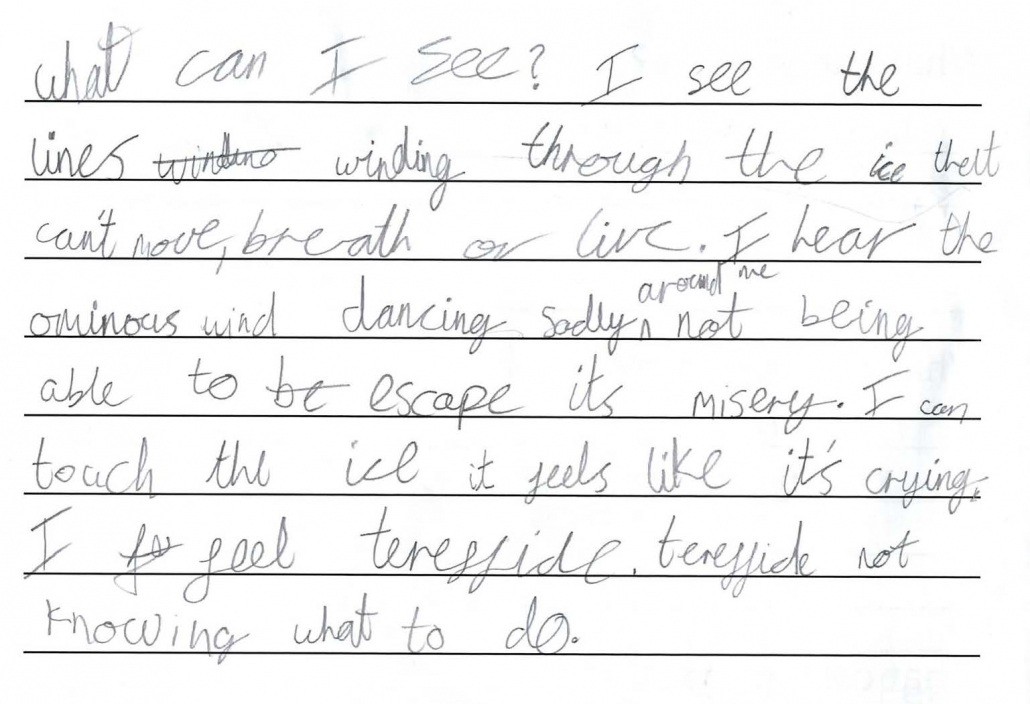 what can I see? I see the
lines winding winding through the ice that
can't move, breath or live. I hear the
ominous wind dancing sadly around me not being
able to be escape its misery. I can
touch the ice it feels like it's crying.
I fe feel tereffide. tereffide not
knowing what to do.